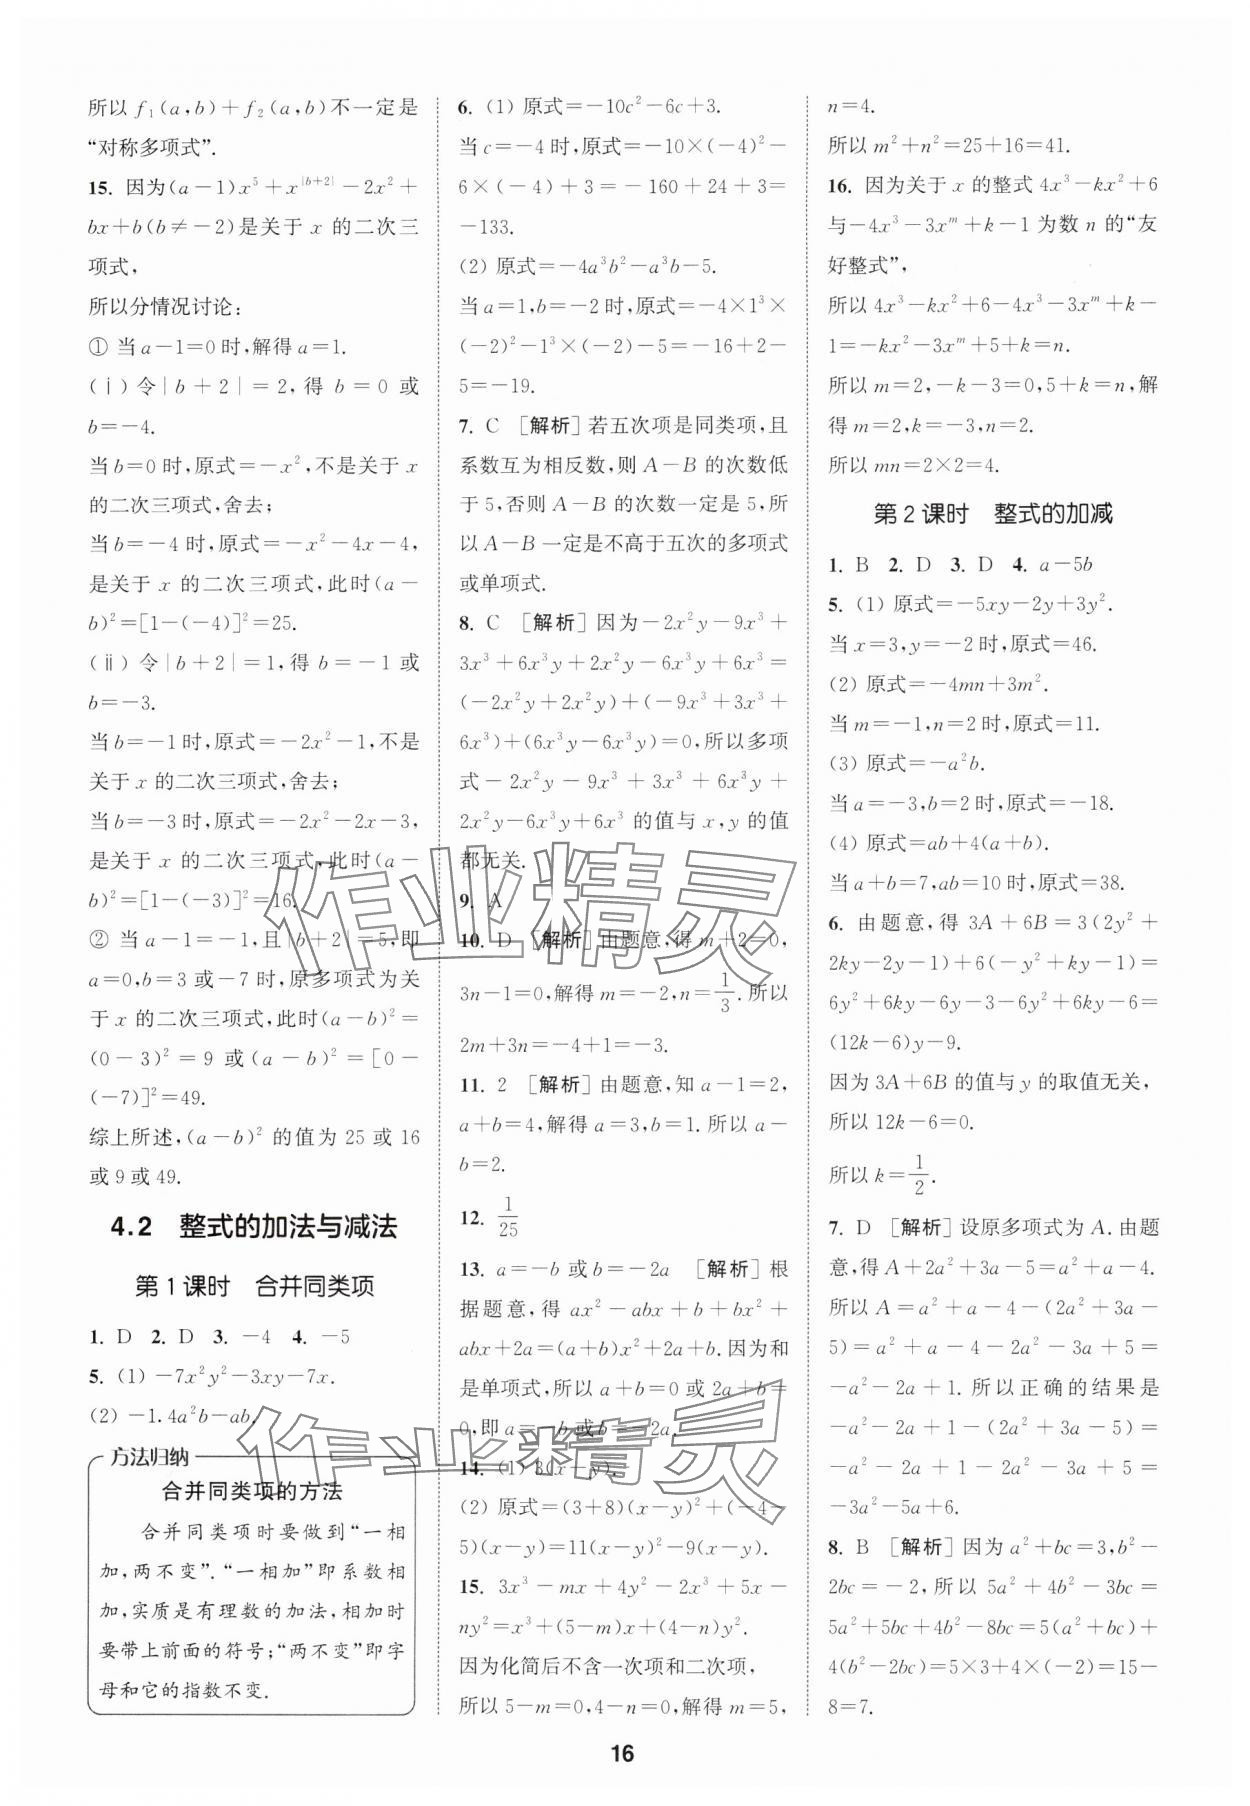 所以 f₁(a,b)+f₂(a,b)不一定是
“对称多项式”.
15. 因为(a-1)x⁵+x^|b+2|-2x²+
bx+b(b≠-2)是关于 x 的二次三
项式,
所以分情况讨论:
① 当 a-1=0 时,解得 a=1.
(ⅰ)令|b+2|=2,得 b=0 或
b=-4.
当 b=0 时,原式=-x²,不是关于 x
的二次三项式,舍去;
当 b=-4 时,原式=-x²-4x-4,
是关于 x 的二次三项式,此时(a-
b)²=[1-(-4)]²=25.
(ⅱ)令|b+2|=1,得 b=-1 或
b=-3.
当 b=-1 时,原式=-2x²-1,不是
关于 x 的二次三项式,舍去;
当 b=-3 时,原式=-2x²-2x-3,
是关于 x 的二次三项式,此时(a-
b)²=[1-(-3)]²=16.
② 当 a-1=-1,且|b+2|=5,即
a=0,b=3 或-7 时,原多项式为关
于 x 的二次三项式,此时(a-b)²=
(0-3)²=9 或(a-b)²=[0-
(-7)]²=49.
综上所述,(a-b)² 的值为 25 或 16
或 9 或 49.
4.2 整式的加法与减法
第 1 课时 合并同类项
1. D 2. D 3. -4 4. -5
5. (1) -7x²y²-3xy-7x.
(2) -1.4a²b-ab.
方法归纳
合并同类项的方法
合并同类项时要做到“一相
加,两不变”.“一相加”即系数相
加,实质是有理数的加法,相加时
要带上前面的符号;“两不变”即字
母和它的指数不变.
6. (1) 原式=-10c²-6c+3.
当 c=-4 时,原式=-10×(-4)²-
6×(-4)+3=-160+24+3=
-133.
(2) 原式=-4a³b²-a³b-5.
当 a=1,b=-2 时,原式=-4×1³×
(-2)²-1³×(-2)-5=-16+2-
5=-19.
7. C [解析]若五次项是同类项,且
系数互为相反数,则 A-B 的次数低
于 5,否则 A-B 的次数一定是 5,所
以 A-B 一定是不高于五次的多项式
或单项式.
8. C [解析]因为-2x²y-9x³+
3x³+6x³y+2x²y-6x³y+6x³=
(-2x²y+2x²y)+(-9x³+3x³+
6x³)+(6x³y-6x³y)=0,所以多项
式-2x²y-9x³+3x³+6x³y+
2x²y-6x³y+6x³ 的值与 x,y 的值
都无关.
9. A
10. D [解析]由题意,得 m+2=0,
3n-1=0,解得 m=-2,n=1/3.所以
2m+3n=-4+1=-3.
11. 2 [解析]由题意,知 a-1=2,
a+b=4,解得 a=3,b=1.所以 a-
b=2.
12. 1/25
13. a=-b 或 b=-2a [解析]根
据题意,得 ax²-abx+b+bx²+
abx+2a=(a+b)x²+2a+b.因为和
是单项式,所以 a+b=0 或 2a+b=
0,即 a=-b 或 b=-2a.
14. (1) 3(x+y).
(2) 原式=(3+8)(x-y)²+(-4-
5)(x-y)=11(x-y)²-9(x-y).
15. 3x³-mx+4y²-2x³+5x-
ny²=x³+(5-m)x+(4-n)y².
因为化简后不含一次项和二次项,
所以 5-m=0,4-n=0,解得 m=5,
n=4.
所以 m²+n²=25+16=41.
16. 因为关于 x 的整式 4x³-kx²+6
与-4x³-3xᵐ+k-1 为数 n 的“友
好整式”,
所以 4x³-kx²+6-4x³-3xᵐ+k-
1=-kx²-3xᵐ+5+k=n.
所以 m=2,-k-3=0,5+k=n,解
得 m=2,k=-3,n=2.
所以 mn=2×2=4.
第 2 课时 整式的加减
1. B 2. D 3. D 4. a-5b
5. (1) 原式=-5xy-2y+3y².
当 x=3,y=-2 时,原式=46.
(2) 原式=-4mn+3m².
当 m=-1,n=2 时,原式=11.
(3) 原式=-a²b.
当 a=-3,b=2 时,原式=-18.
(4) 原式=ab+4(a+b).
当 a+b=7,ab=10 时,原式=38.
6. 由题意,得 3A+6B=3(2y²+
2ky-2y-1)+6(-y²+ky-1)=
6y²+6ky-6y-3-6y²+6ky-6=
(12k-6)y-9.
因为 3A+6B 的值与 y 的取值无关,
所以 12k-6=0.
所以 k=1/2.
7. D [解析]设原多项式为 A.由题
意,得 A+2a²+3a-5=a²+a-4.
所以 A=a²+a-4-(2a²+3a-
5)=a²+a-4-2a²-3a+5=
-a²-2a+1.所以正确的结果是
-a²-2a+1-(2a²+3a-5)=
-a²-2a+1-2a²-3a+5=
-3a²-5a+6.
8. B [解析]因为 a²+bc=3,b²-
2bc=-2,所以 5a²+4b²-3bc=
5a²+5bc+4b²-8bc=5(a²+bc)+
4(b²-2bc)=5×3+4×(-2)=15-
8=7.
作业精灵
作业精灵
16